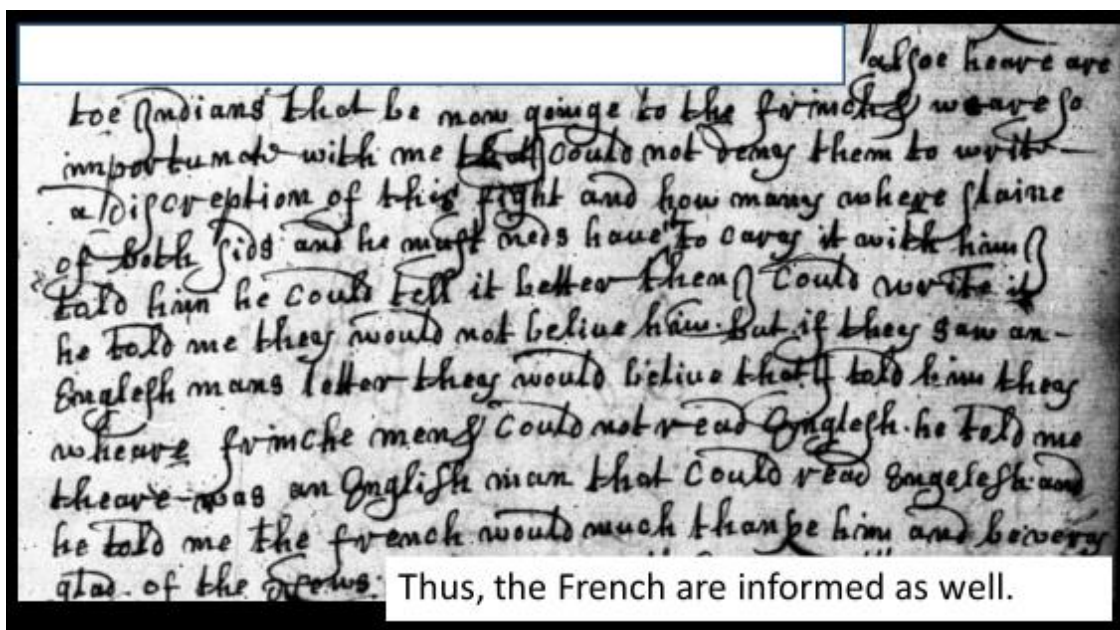 alsoe heare are
toe Indians that be now goinge to the frinch & weare so
importunate with me that I could not deny them to write
a discreption of this fight and how many where slaine
of both sids and he must neds have to cary it with him I
told him he could tell it better then I could write it
he told me they would not belive him. but if they saw an
Englesh mans letter they would belive that I told him they
wheare frinche men & could not read Englesh. he told me
theare was an English man that could read Engelesh and
he told me the french would much thanke him and be very
glad of the news:
Thus, the French are informed as well.